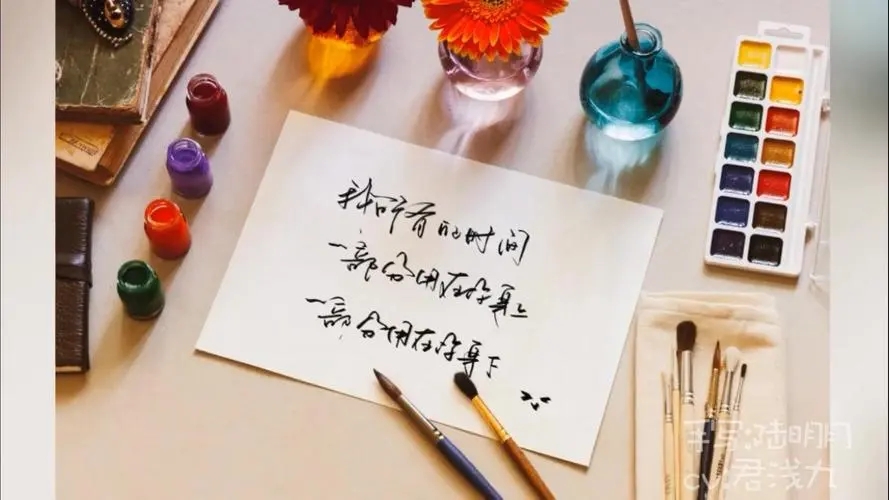 我所有的时间
一部分用在你身上
一部分用在你身下
手写:陆明月
cv:君浅九